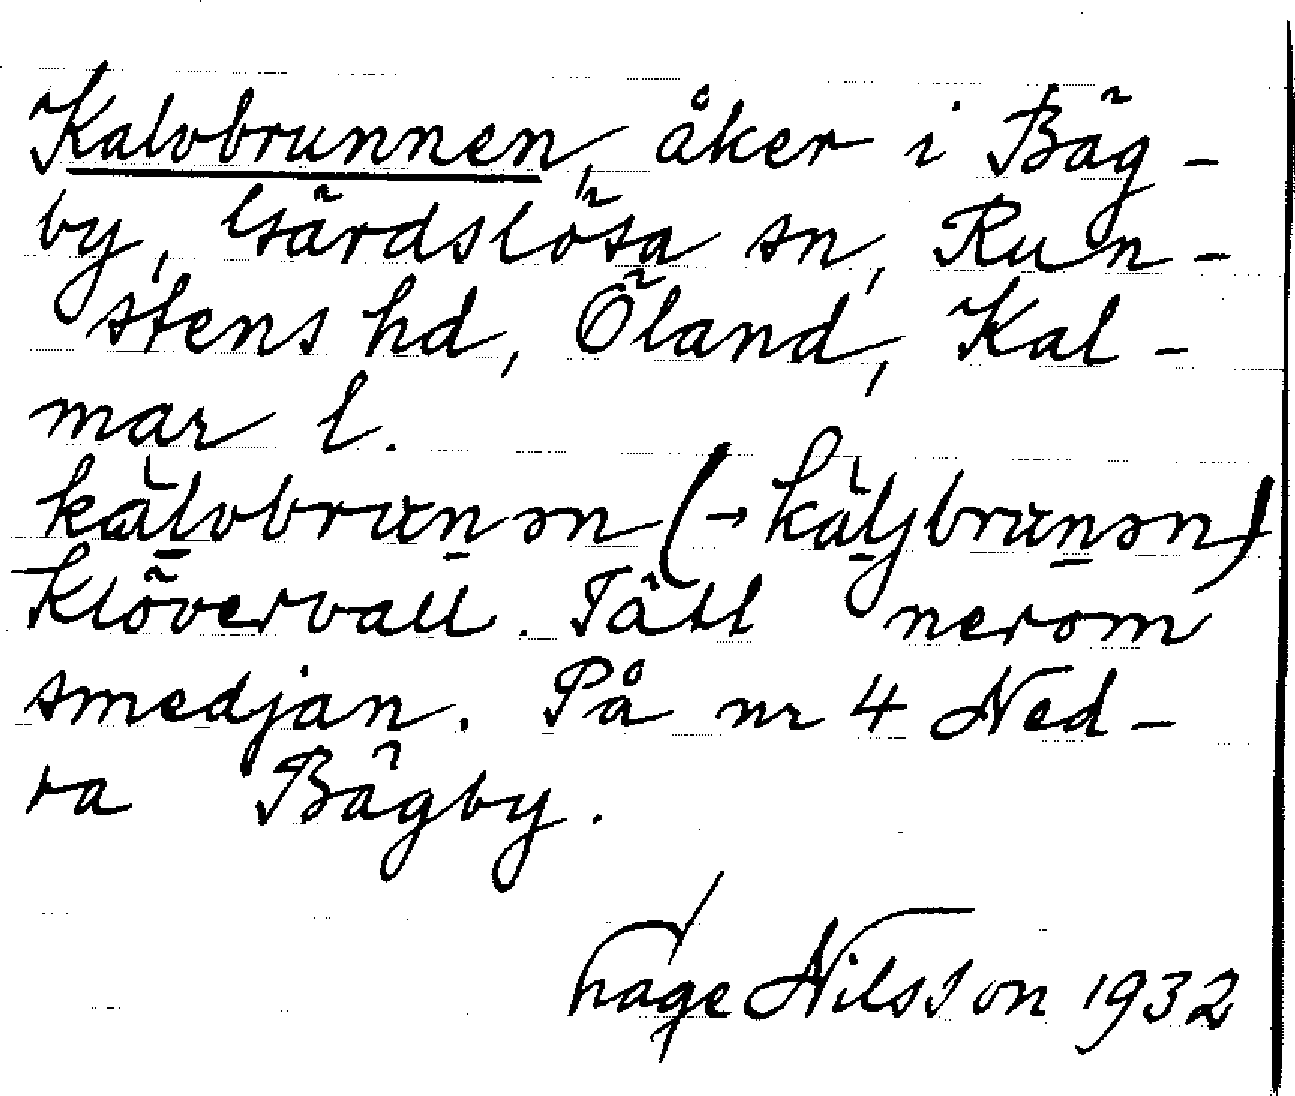 Kalvbrunnen, åker i Bäg-
by, Gärdslösa sn, Run-
stens hd, Öland, Kal-
mar l.
kàlvbrunən (→ kàljbrunən)
Klövervall. Tätt nerom
smedjan. På nr 4 Ned-
ra Bägby.
Hage Nilsson 1932